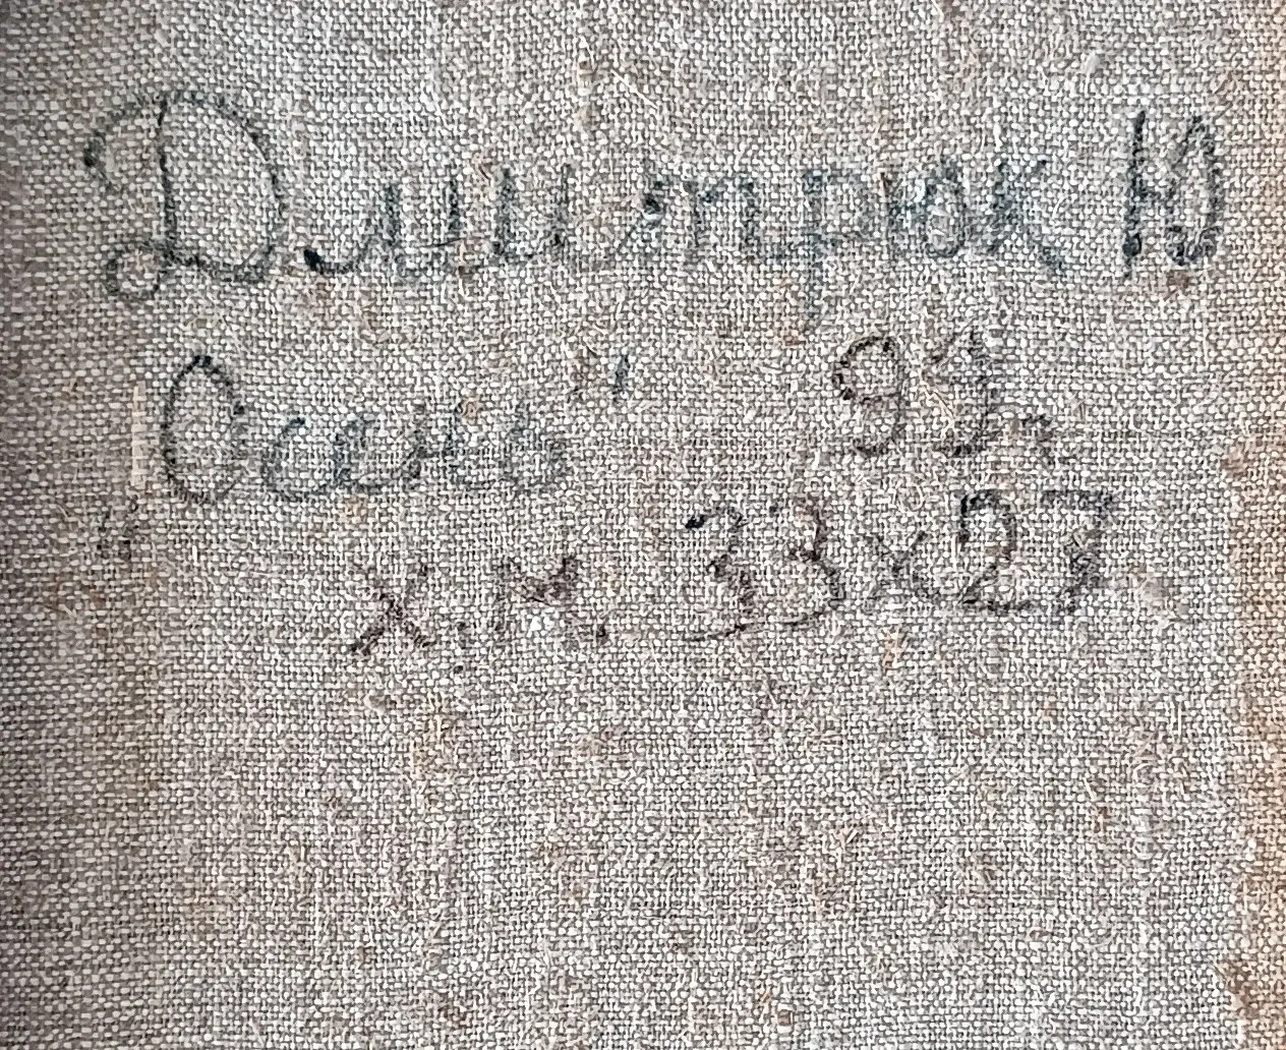 Дмитрюк Ю
"Осень" 91г
х.м. 33х27